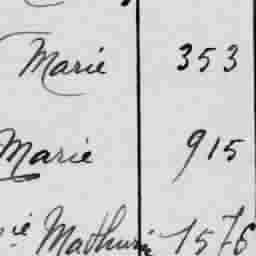 Marie 353
Marie 915
ie Mathurin 1576